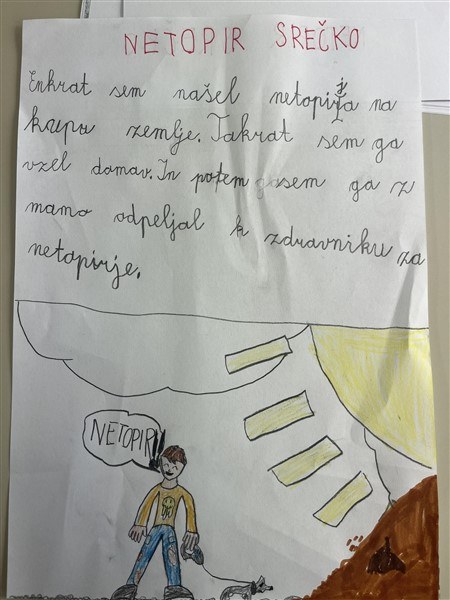 NETOPIR SREČKO
Enkrat sem našel netopirja na
kupu zemlje. Takrat sem ga
vzel domov. In potem sem ga z
mamo odpeljal k zdravniku za
netopirje.
NETOPIR!!